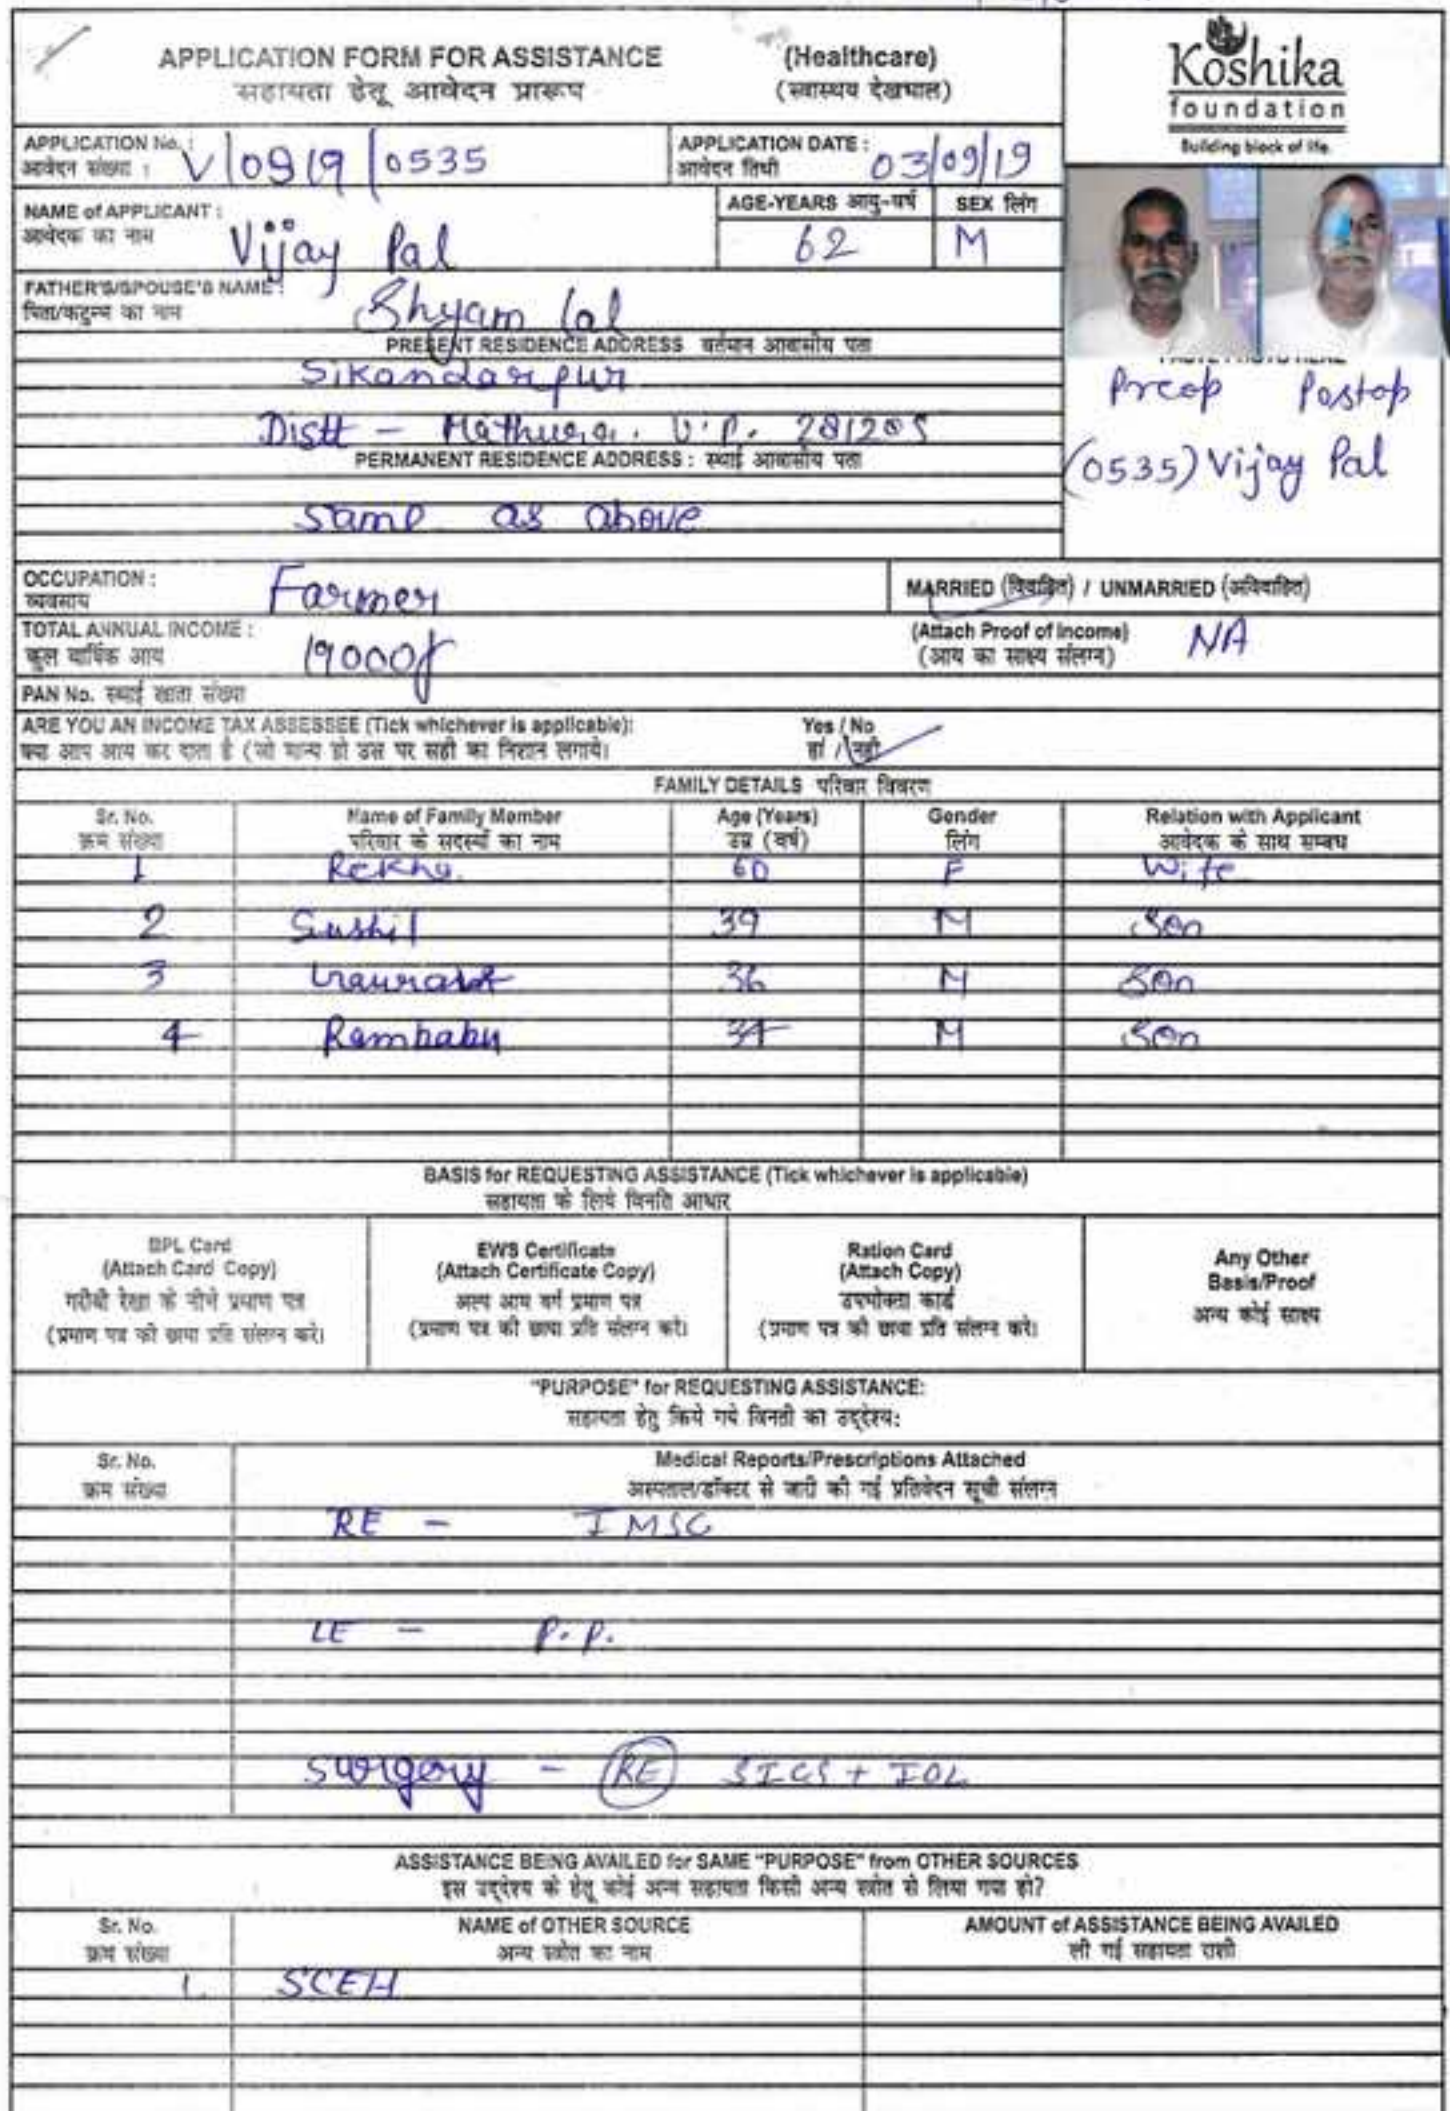 APPLICATION FORM FOR ASSISTANCE (Healthcare)
सहायता हेतू आवेदन प्रारूप (स्वास्थय देखभाल)
Koshika
foundation
Building block of life.
APPLICATION No. : V/0919/0535
आवेदन संख्या :
APPLICATION DATE : 03/09/19
आवेदन तिथी
NAME of APPLICANT : Vijay Pal
आवेदक का नाम
AGE-YEARS आयु-वर्ष 62
SEX लिंग M
FATHER'S/SPOUSE'S NAME : Shyam lal
पिता/कटुम्ब का नाम
PRESENT RESIDENCE ADDRESS वर्तमान आवासीय पता
Sikandarpur
Distt - Mathura. U.P. 281205
PERMANENT RESIDENCE ADDRESS : स्थाई आवासीय पता
same as above
Preop Postop
(0535) Vijay Pal
OCCUPATION : Farmer
व्यवसाय
MARRIED (विवाहित) / UNMARRIED (अविवाहित)
TOTAL ANNUAL INCOME : 19000/
कुल वार्षिक आय
(Attach Proof of Income) NA
(आय का साक्ष्य संलग्न)
PAN No. स्थाई खाता संख्या
ARE YOU AN INCOME TAX ASSESSEE (Tick whichever is applicable): Yes / No
क्या आप आय कर दाता है (जो मान्य हो उस पर सही का निशान लगाये। हां / नहीं
FAMILY DETAILS परिवार विवरण
Sr. No. Name of Family Member Age (Years) Gender Relation with Applicant
क्रम संख्या परिवार के सदस्यों का नाम उम्र (वर्ष) लिंग आवेदक के साथ सम्बध
1 Rekha 60 F Wife
2 Sushil 39 M Son
3 36 M Son
4 Rambabu 34 M Son
BASIS for REQUESTING ASSISTANCE (Tick whichever is applicable)
सहायता के लिये विनति आधार
BPL Card
(Attach Card Copy)
गरीबी रेखा के नीचे प्रमाण पत्र
(प्रमाण पत्र की छाया प्रति संलग्न करे।
EWS Certificate
(Attach Certificate Copy)
अल्प आय वर्ग प्रमाण पत्र
(प्रमाण पत्र की छाया प्रति संलग्न करे।
Ration Card
(Attach Copy)
उपभोक्ता कार्ड
(प्रमाण पत्र की छाया प्रति संलग्न करे।
Any Other
Basis/Proof
अन्य कोई साक्ष्य
"PURPOSE" for REQUESTING ASSISTANCE:
सहायता हेतु किये गये विनती का उद्देश्य:
Sr. No. Medical Reports/Prescriptions Attached
क्रम संख्या अस्पताल/डॉक्टर से जारी की गई प्रतिवेदन सूची संलग्न
RE - IMSC
LE - P.P.
Surgery - RE SICS + IOL
ASSISTANCE BEING AVAILED for SAME "PURPOSE" from OTHER SOURCES
इस उद्देश्य के हेतू कोई अन्य सहायता किसी अन्य स्त्रोत से लिया गया हो?
Sr. No. NAME of OTHER SOURCE AMOUNT of ASSISTANCE BEING AVAILED
क्रम संख्या अन्य स्त्रोत का नाम ली गई सहायता राशी
1. SCEH